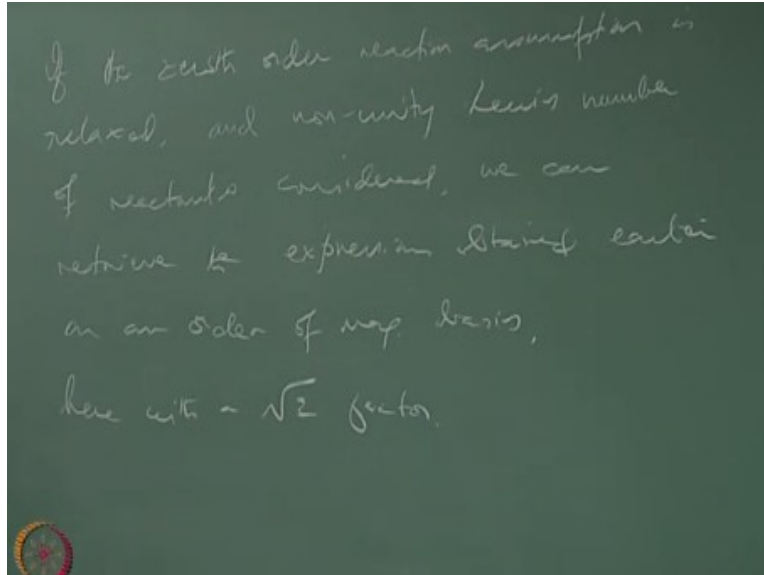 If the zeroth order reaction assumption is
relaxed, and non-unity Lewis number
of reactants considered, we can
retrieve the expression obtained earlier
on an order of mag. basis,
here with a √2 factor.